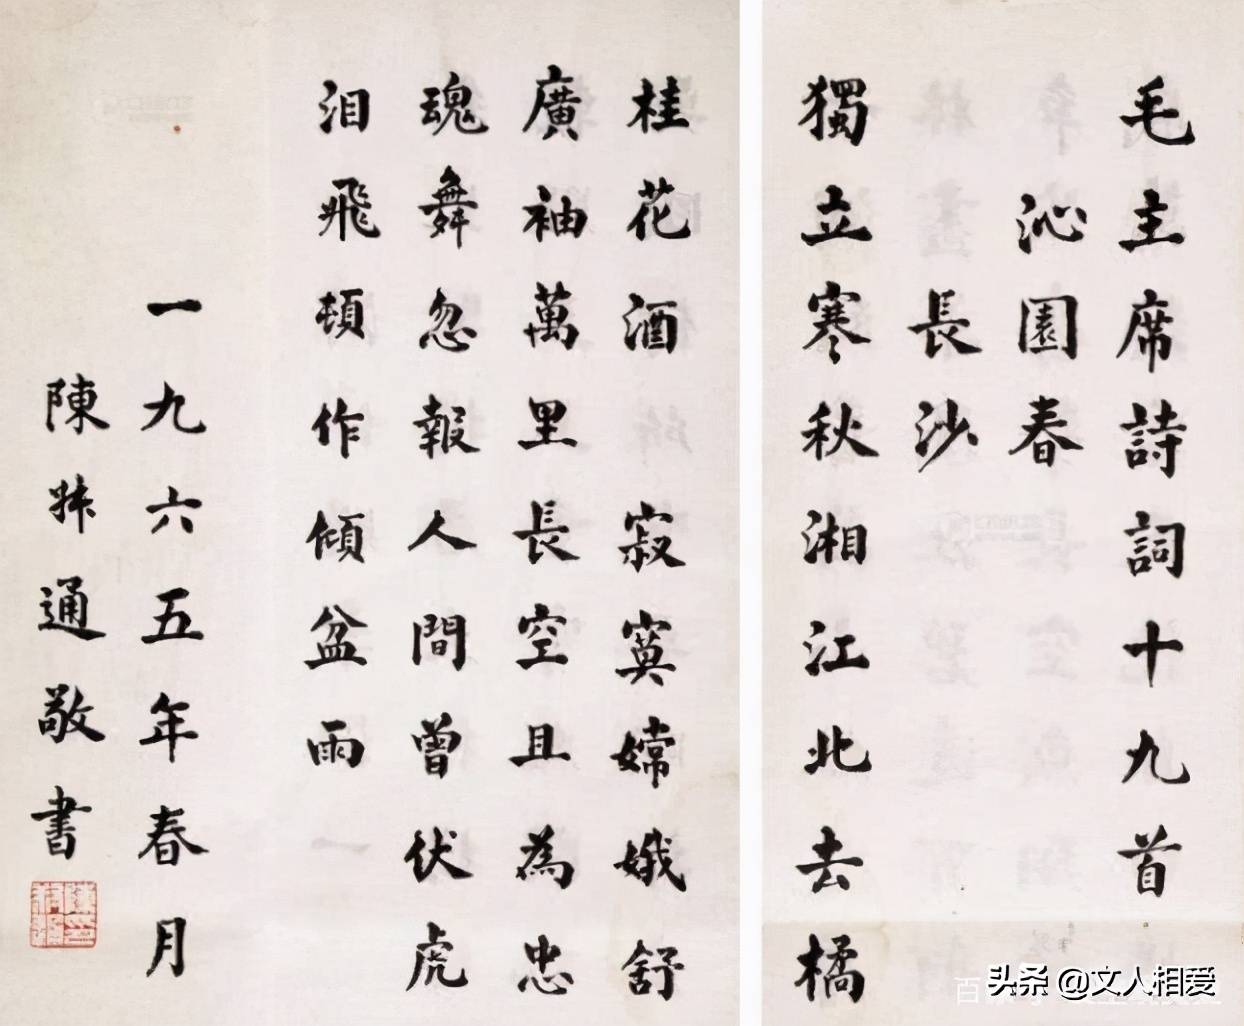 毛主席詩詞十九首
沁園春
長沙
獨立寒秋湘江北去橘
桂花酒 寂寞嫦娥舒
廣袖萬里長空且為忠
魂舞忽報人間曾伏虎
泪飛頓作傾盆雨
一九六五年春月
陳叔通敬書
头条 @文人相爱